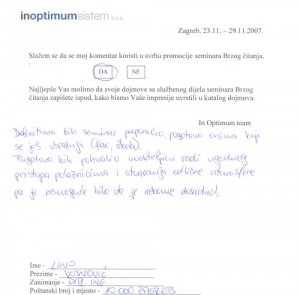 inoptimumsistem d.o.o.
Zagreb, 23.11. – 29.11.2007.
Slažem se da se moj komentar koristi u svrhu promocije seminara Brzog čitanja.
DA NE
Najljepše Vas molimo da svoje dojmove sa službenog dijela seminara Brzog
čitanja zapišete ispod, kako bismo Vaše impresije uvrstili u katalog dojmova.
In Optimum team
Definitivno bih seminar preporučio, pogotovo onima koji
se još obrazuju (fax, škola).
Pogotovo bih pohvalio voditeljicu radi ugodnog
pristupa polaznicima i stvaranja odlične atmosfere
pa je nemoguće bilo da je nekome dosadno!
Ime - LINO
Prezime - VOJNOVIĆ
Zanimanje - DIPL. ING
Poštanski broj i mjesto - 10 000 ZAGREB